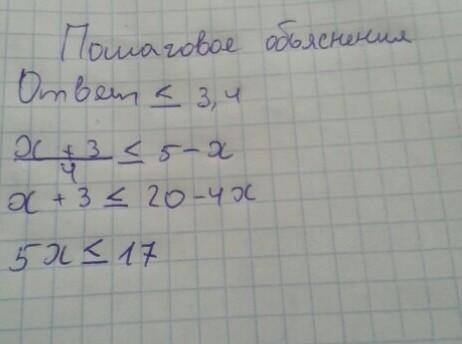 Пошаговое объяснения
Ответ ≤ 3,4
x + 3 / 4 ≤ 5 - x
x + 3 ≤ 20 - 4x
5x ≤ 17